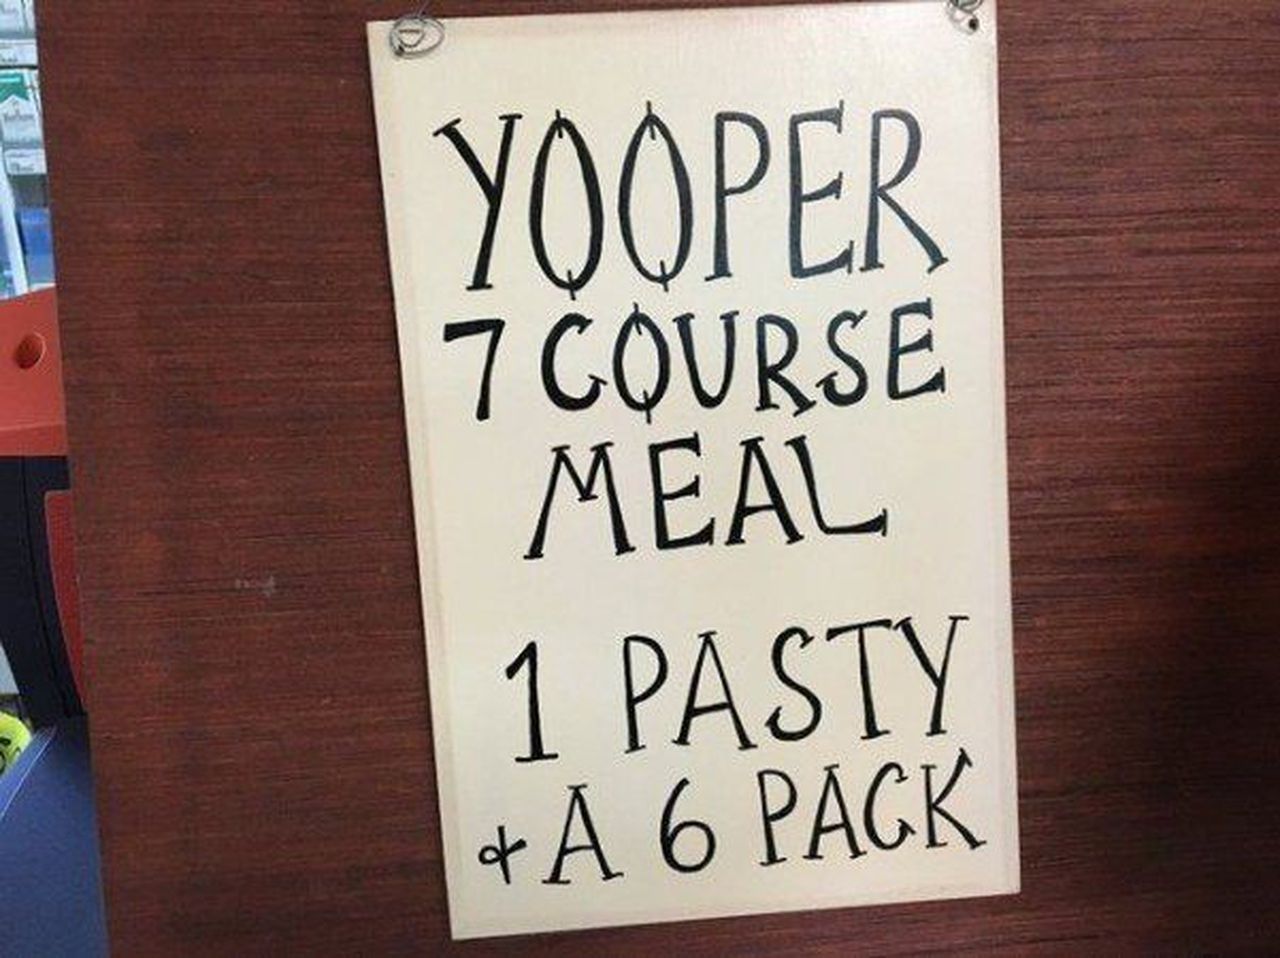 YOOPER
7 COURSE
MEAL
1 PASTY
& A 6 PACK